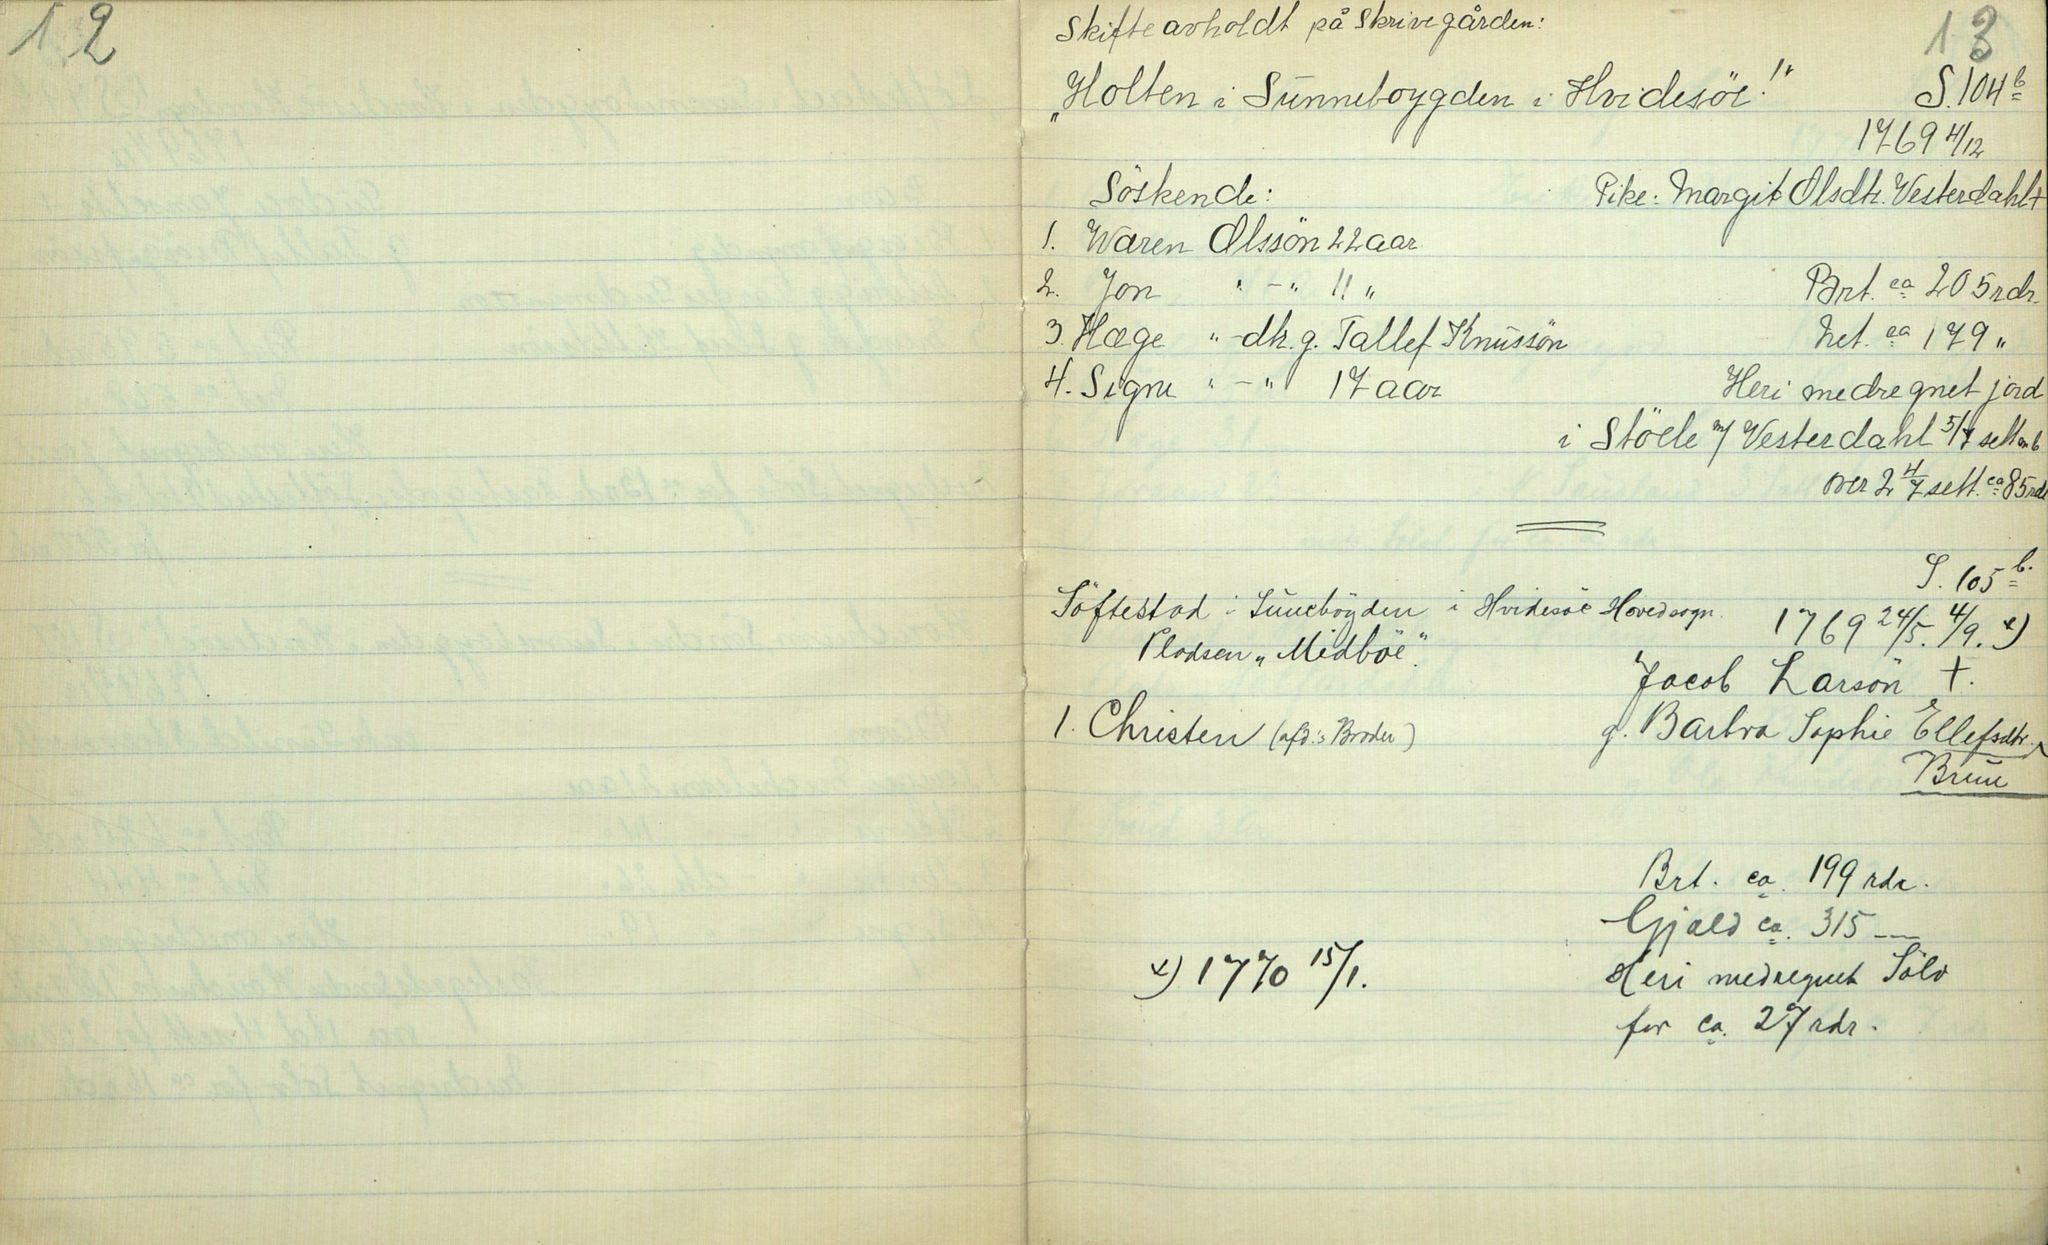 12
13
Skifte avholdt på Skrivegården:
"Holten i Sunneboygden i Hvidesöe!" S. 104 b
1769 4/12
Söskende: Pike: Margit Olsdtr. Vesterdahl +
1. Waren Olssön 22 aar
2. Jon " - " 11 " Brt. ca 205 rdr.
3. Hæge " - dtr. g. Tallef Knussön Net. ca 179 "
4. Signe " - " 17 aar Heri medregnet jord
i Stöele m/ Vesterdahl 5/7 sett
over 2 4/7 sett. ca 85 rdr
S. 105 b.
Söftestad i Sunebögden i Hvidesöe Hovedsogn. 1769 24/5. 4/9. x)
Pladsen "Midböe".
Jacob Larsön +.
1. Christen (afd.'s Broder) g. Barbra Sophie Ellefsdtr.
Bruu
Brt. ca. 199 rdr.
Gjæld ca. 315 —
x) 1770 15/1. Heri medregnet Sölv
for ca. 27 rdr.